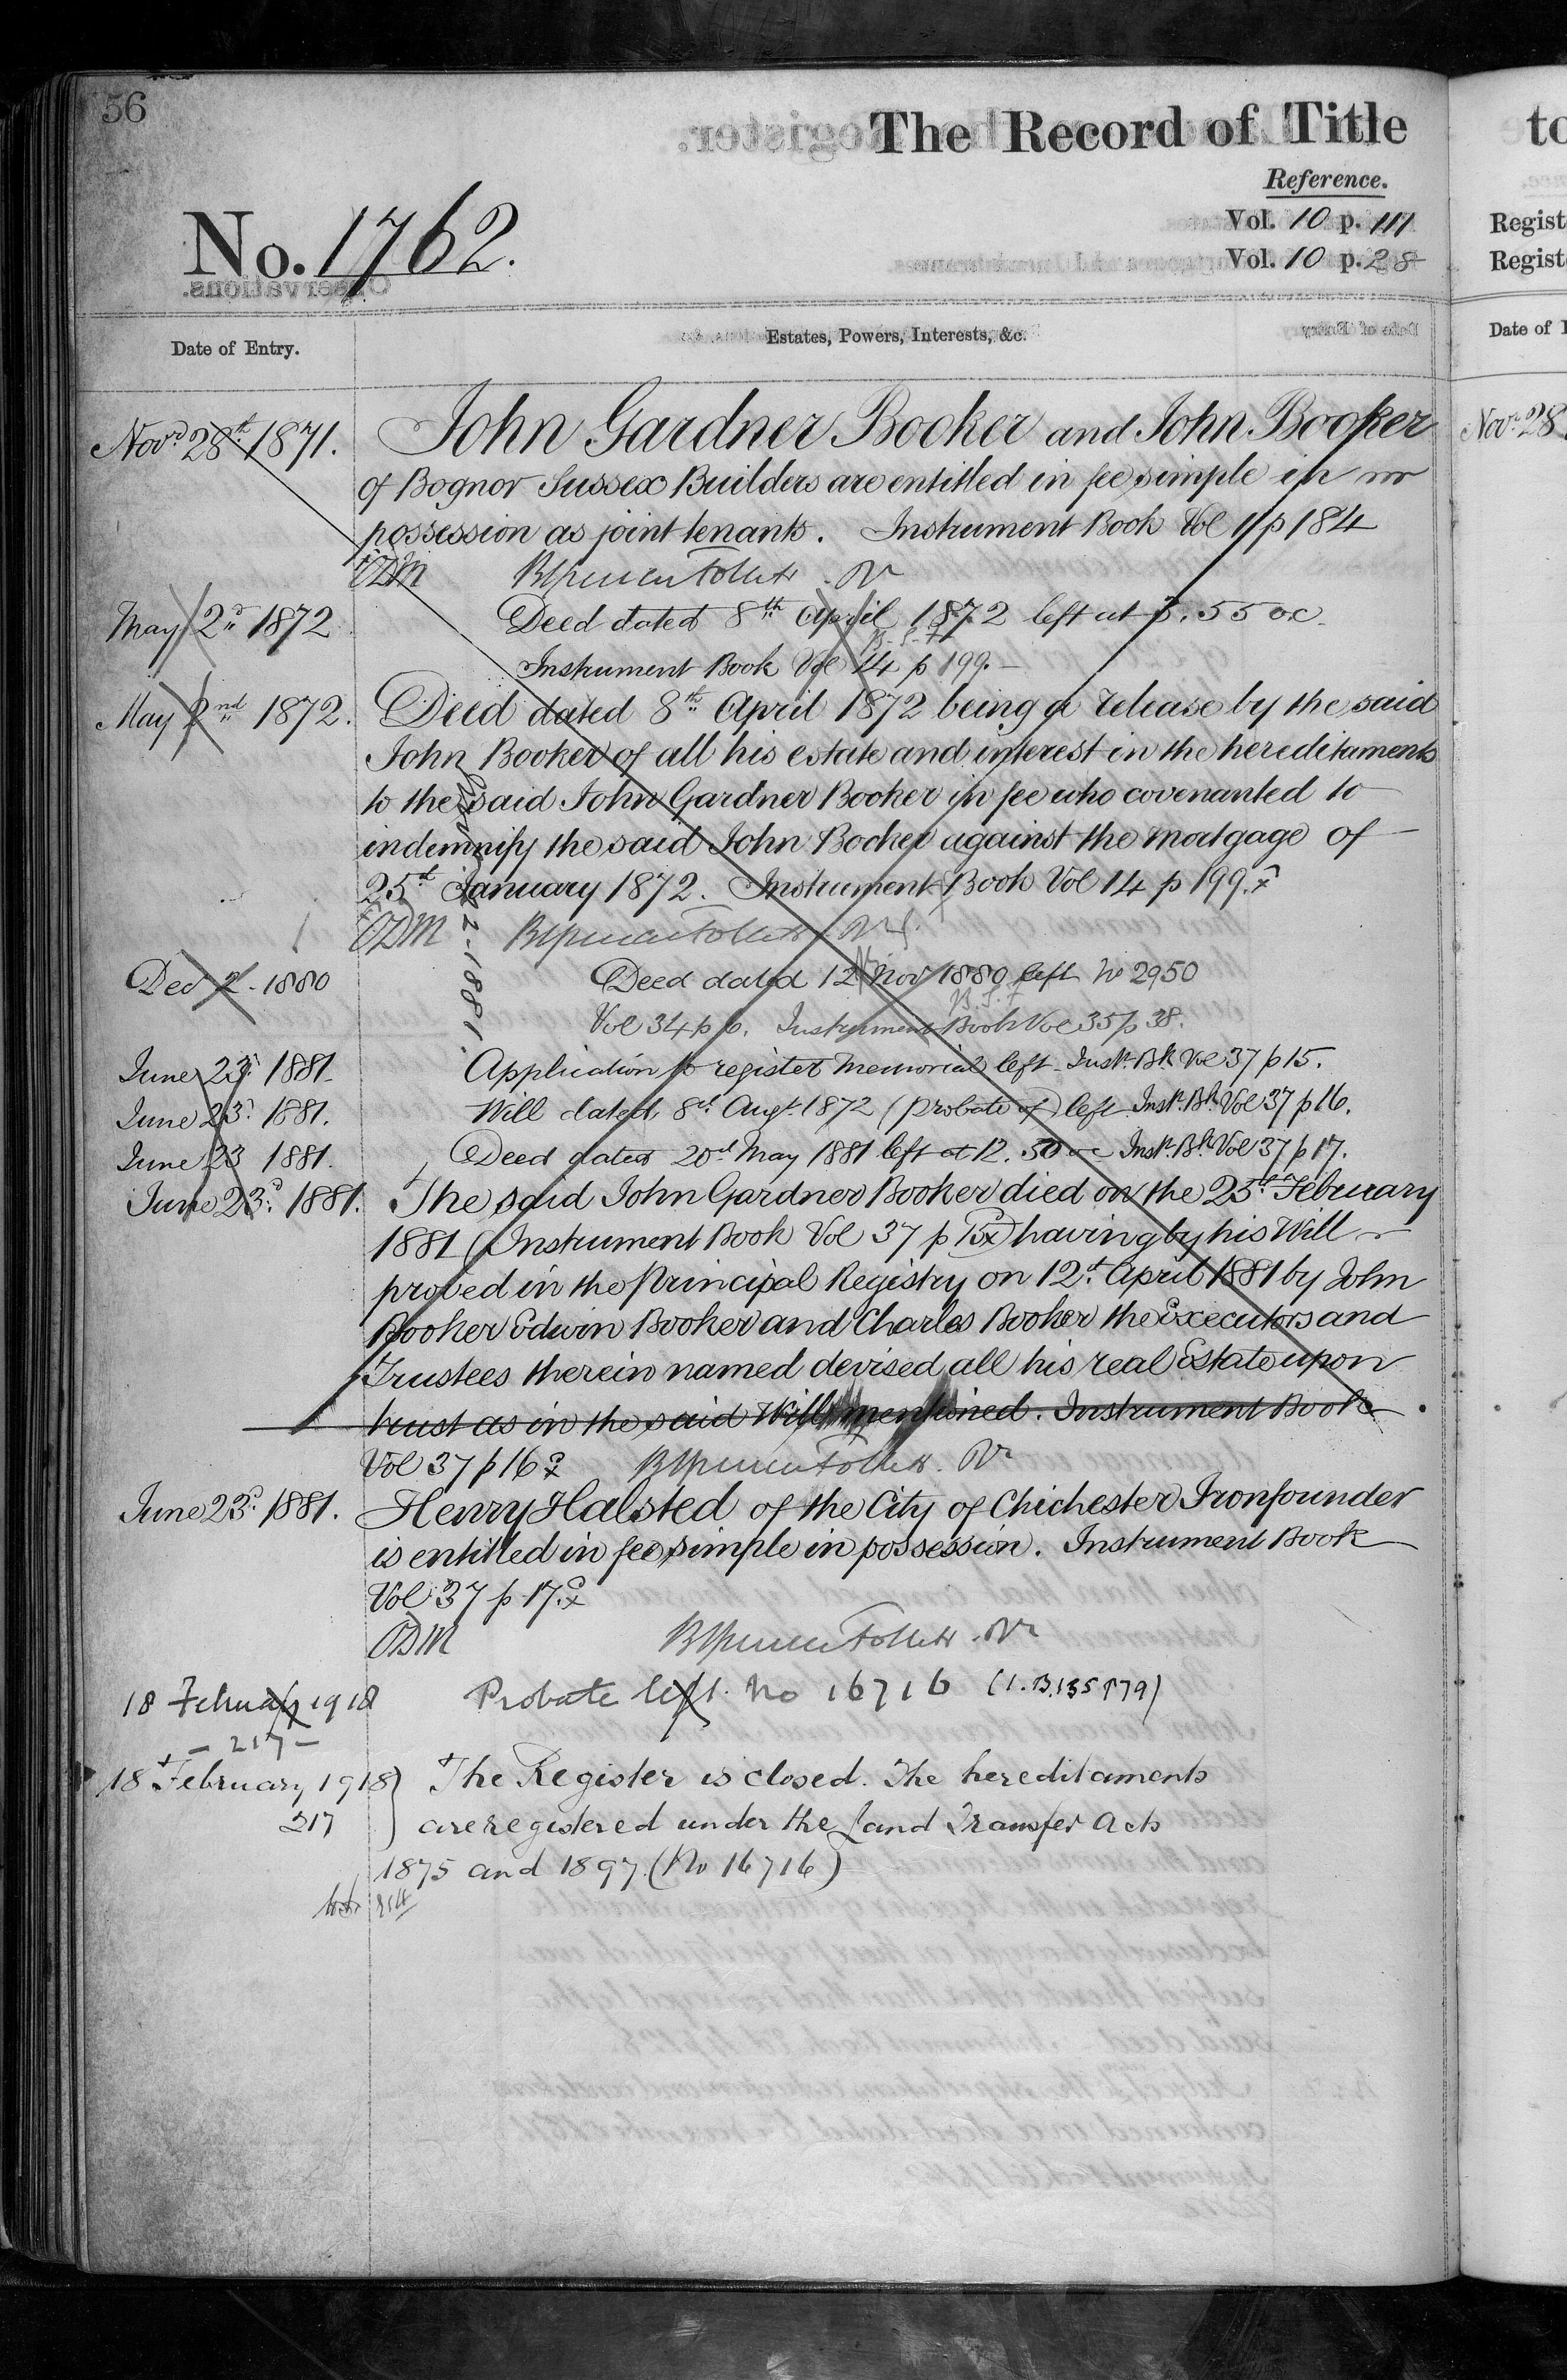 56
The Record of Title
Reference.
No. 1762.
Vol. 10 p. 111
Vol. 10 p. 28
Date of Entry.
Estates, Powers, Interests, &c.
Novr. 28th 1871. John Gardner Booker and John Booker
of Bognor Sussex Builders are entitled in fee simple in
possession as joint tenants. Instrument Book Vol 11 p 184
ODM
May 2d 1872 Deed dated 8th April 1872 left at 3.55 oc.
Instrument Book Vol 14 p 199.
May 2nd 1872. Deed dated 8th April 1872 being a release by the said
John Booker of all his estate and interest in the hereditaments
to the said John Gardner Booker in fee who covenanted to
indemnify the said John Booker against the mortgage of
25th January 1872. Instrument Book Vol 14 p 199.
ODM
Dec 2. 1880 Deed dated 12 Nov 1880 left No 2950
Vol 34 p 6. Instrument Book Vol 35 p 38.
June 23d 1881. Application to register memorial left Inst. Bk Vol 37 p 15.
June 23d 1881. Will dated 8th Augt 1872 (probate of) left Inst. Bk Vol 37 p 16.
June 23 1881. Deed dated 20th May 1881 left at 12.30 oc Inst. Bk Vol 37 p 17.
June 23d 1881. The said John Gardner Booker died on the 25th February
1881 (Instrument Book Vol 37 p 15) having by his Will
proved in the Principal Registry on 12th April 1881 by John
Booker Edwin Booker and Charles Booker the Executors and
Trustees therein named devised all his real Estate upon
trust as in the said Will mentioned. Instrument Book
Vol 37 p 16
June 23d 1881. Henry Halsted of the City of Chichester Ironfounder
is entitled in fee simple in possession. Instrument Book
Vol 37 p 17.
ODM
18 February 1918 Probate left No 16716 (I.B. 135 p 79)
- 217 -
18 February 1918) The Register is closed. The hereditaments
217 ) are registered under the Land Transfer Acts
1875 and 1897. (No 16716)
to
Regist
Regist
Date of
Novr. 28